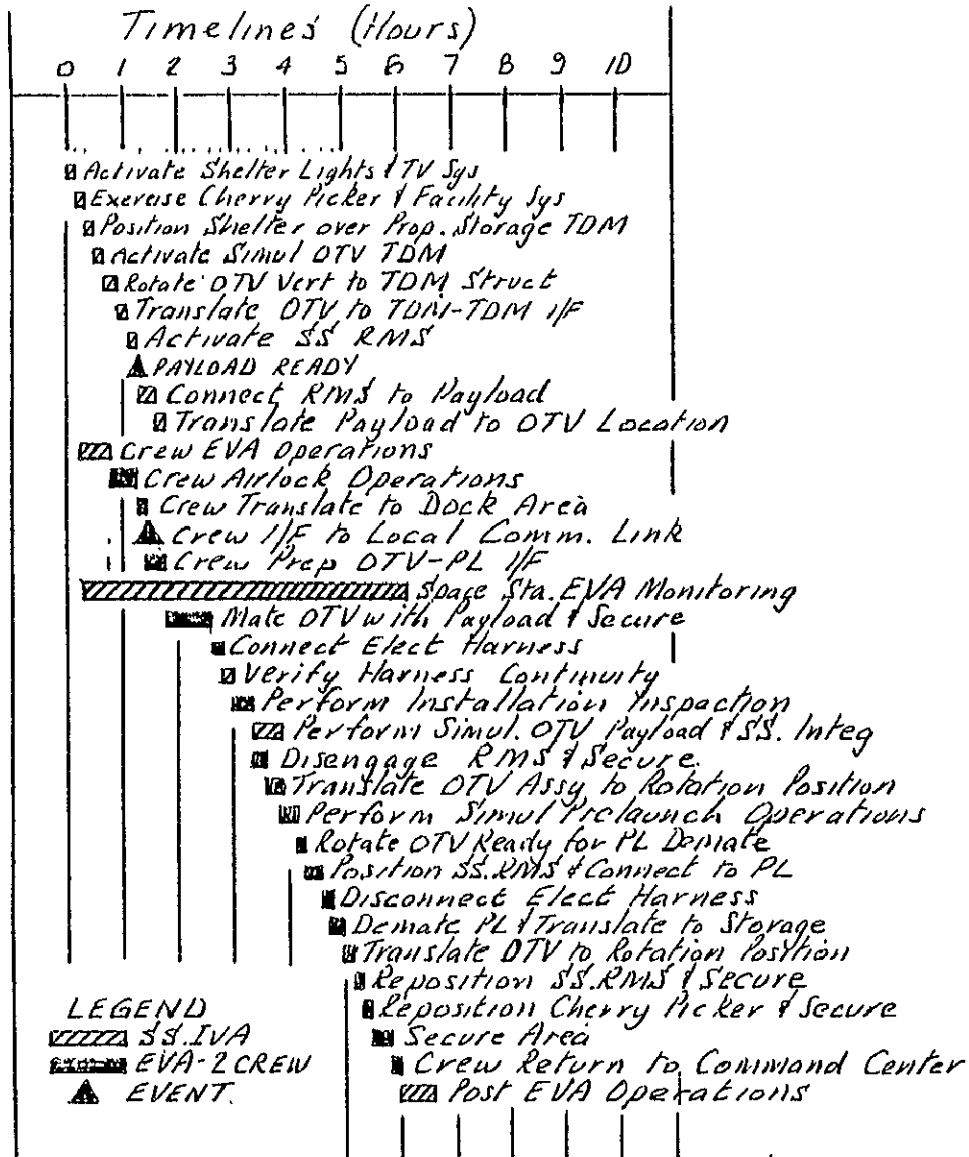 Timelines (Hours)
0 1 2 3 4 5 6 7 8 9 10
Activate Shelter Lights & TV Sys
Exercise Cherry Picker & Facility Sys
Position Shelter over Prop. Storage TDM
Activate Simul OTV TDM
Rotate OTV Vert to TDM Struct
Translate OTV to TDM-TDM I/F
Activate SS RMS
PAYLOAD READY
Connect RMS to Payload
Translate Payload to OTV Location
Crew EVA Operations
Crew Airlock Operations
Crew Translate to Dock Area
Crew I/F to Local Comm. Link
Crew Prep OTV-PL I/F
Space Sta. EVA Monitoring
Mate OTV with Payload & Secure
Connect Elect Harness
Verify Harness Continuity
Perform Installation Inspaction
Perform Simul. OTV Payload & SS. Integ
Disengage RMS & Secure.
Translate OTV Assy to Rotation Position
Perform Simul Prelaunch Operations
Rotate OTV Ready for PL Demate
Position SS.RMS & Connect to PL
Disconnect Elect Harness
Demate PL & Translate to Storage
Translate OTV to Rotation Position
Reposition SS.RMS & Secure
Reposition Cherry Picker & Secure
Secure Area
Crew Return to Command Center
Post EVA Operations
LEGEND
SS.IVA
EVA-2 CREW
EVENT.